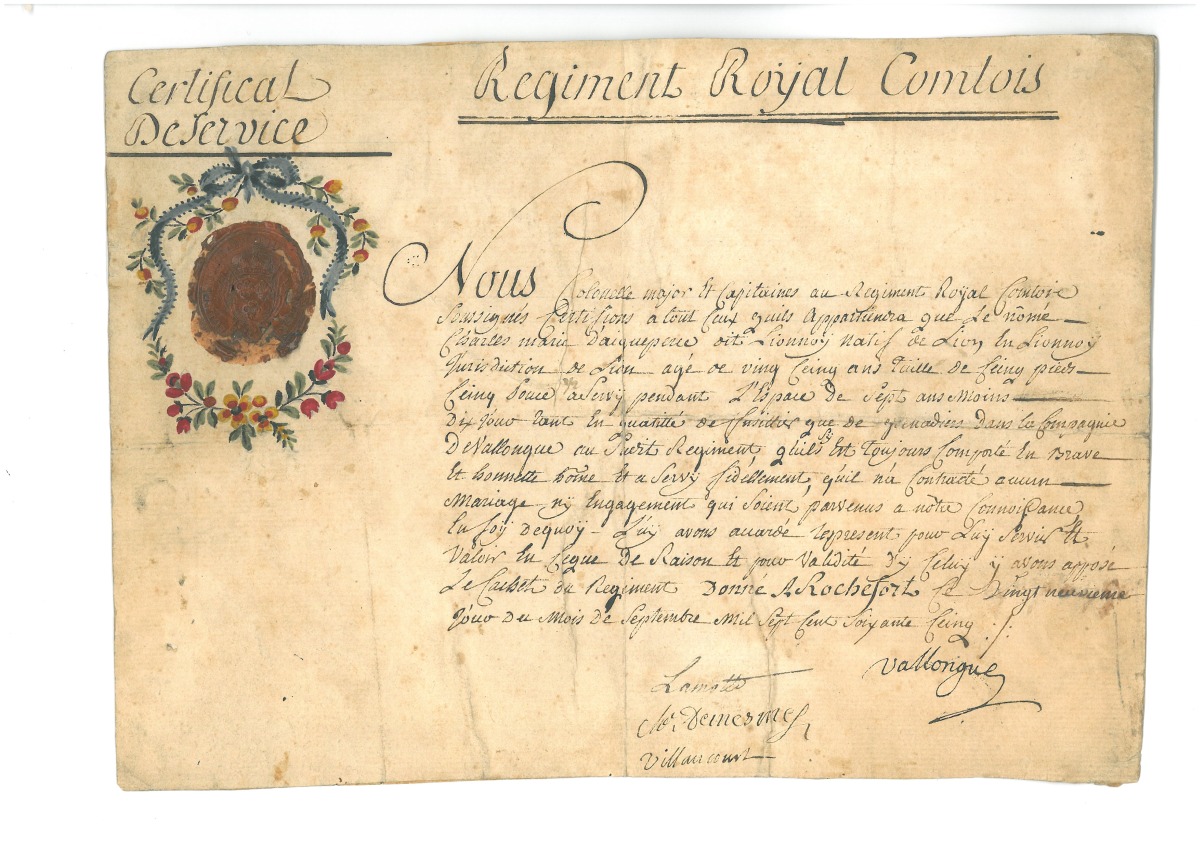 Certificat
De Service
Regiment Royal Comtois
Nous Colonelle major Et Capitaines au Regiment Royal Comtois
Soussignes Certifions a tout Ceux quils Appartiendra que Le nomé
Charles marie Daigueperse dit Lionnoy Natif de Lion En Lionnoy
Jurisdiction de Lion agé de ving Ceinq ans Taille de Ceinq pieds
Ceinq pouce a Servy pendant L'Espace de Sept ans Moins
Dix Jour tant En qualité de fusillier que de grenadiers Dans la Compagnie
DeVallongue au Regiment quils sy Est Toujours Comporté En Brave
Et honnette home Et a Servy fidellement, quil n'a Contracté aucun
Mariage ny Engagement qui Soient parvenus a nôtre Connoisance
En foy Dequoy Luy avons accordé le present pour Luy Servir Et
Valoir En Ceque De Raison Et pour Validité D'y Celuy y avons apposé
Le Cachet du Regiment Donné A Rochefort Ce Vingt neuvieme
Jour Du Mois De Septembre Mil Sept Cent Soixante Ceinq ./.
Vallongue
Lamotte
Ch.r Demesmes,
Villancourt